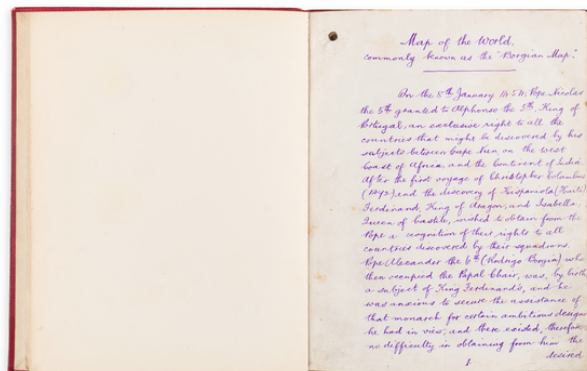 Map of the World,
commonly known as the "Borgian Map".
On the 8th January 1454, Pope Nicolas
the 5th granted to Alphonso the 5th, King of
Portugal, an exclusive right to all the
countries that might be discovered by his
subjects between Cape Nun, on the west
Coast of Africa, and the Continent of India.
After the first voyage of Christopher Columbus
(1492) and the discovery of Hispaniola (Haiti)
Ferdinand, King of Aragon, and Isabella,
Queen of Castile, wished to obtain from the
Pope a recognition of their rights to all
countries discovered by their squadrons.
Pope Alexander the 6th (Rodrigo Borgia) who
then occupied the Papal Chair, was, by birth
a subject of King Ferdinand's, and he
was anxious to secure the assistance of
that monarch for certain ambitious designs
he had in view, and there existed, therefore,
no difficulty in obtaining from him the
desired
1